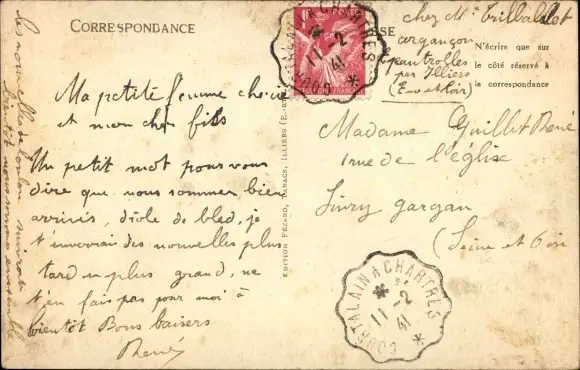 CORRESPONDANCE
Ma petite femme chérie
et mon cher fils
Un petit mot pour vous
dire que nous sommes bien
arrivés, drôle de bled, je
t'enverrai des nouvelles plus
tard plus grand, ne
t'en fais pas pour moi à
bientôt Bons baisers
René
bientôt nous serons ensemble
EDITION FÉZARD, TABACS, ILLIERS
chez Mr Tribaldet
argançon
par Illiers
(Eure et Loir)
N'écrire que sur
le côté réservé à
la correspondance
COURTALAIN A CHARTRES
11 -2
41
Madame Guillet René
1 rue de l'église
Livry gargan
(Seine et Oise
COURTALAIN A CHARTRES
11 -2
41